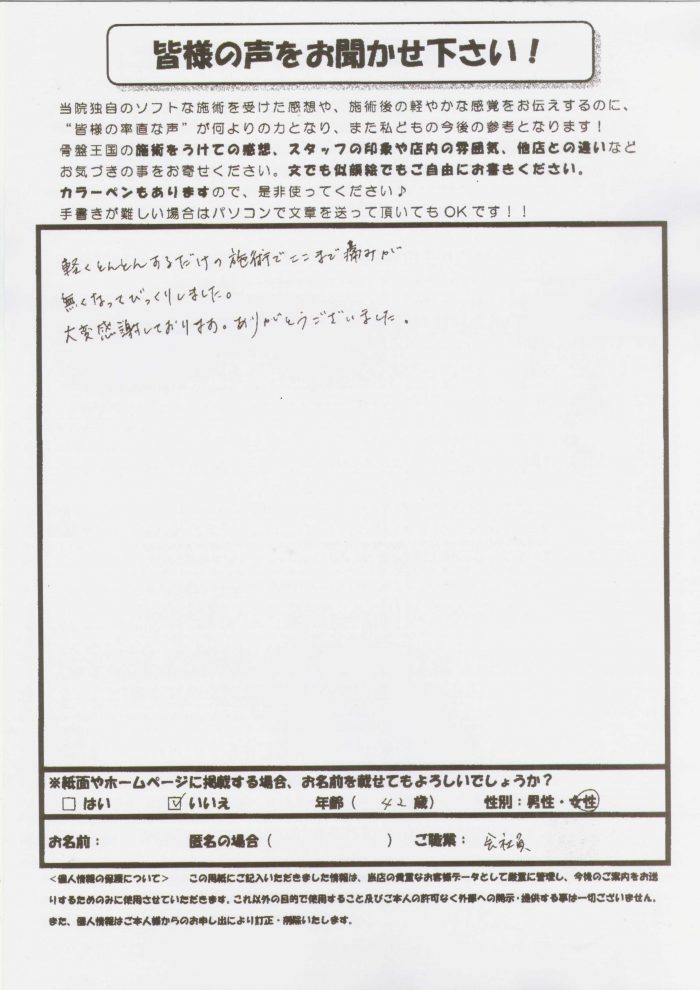 皆様の声をお聞かせ下さい！
当院独自のソフトな施術を受けた感想や、施術後の軽やかな感覚をお伝えするのに、
“皆様の率直な声”が何よりの力となり、また私どもの今後の参考となります！
骨盤王国の施術をうけての感想、スタッフの印象や店内の雰囲気、他店との違いなど
お気づきの事をお寄せください。文でも似顔絵でもご自由にお書きください。
カラーペンもありますので、是非使ってください♪
手書きが難しい場合はパソコンで文章を送って頂いてもOKです！！
軽くとんとんするだけの施術でここまで痛みが
無くなってびっくりしました。
大変感謝しております。ありがとうございました。
※紙面やホームページに掲載する場合、お名前を載せてもよろしいでしょうか？
□はい ☑いいえ 年齢（ 42 歳） 性別：男性・女性
お名前： 匿名の場合（ ） ご職業： 会社員
＜個人情報の保護について＞ この用紙にご記入いただきました情報は、当店の貴重なお客様データとして厳重に管理し、今後のご案内をお送
りするためのみに使用させていただきます。これ以外の目的で使用すること及びご本人の許可なく外部への開示・提供する事は一切ございません。
また、個人情報はご本人様からのお申し出により訂正・削除いたします。